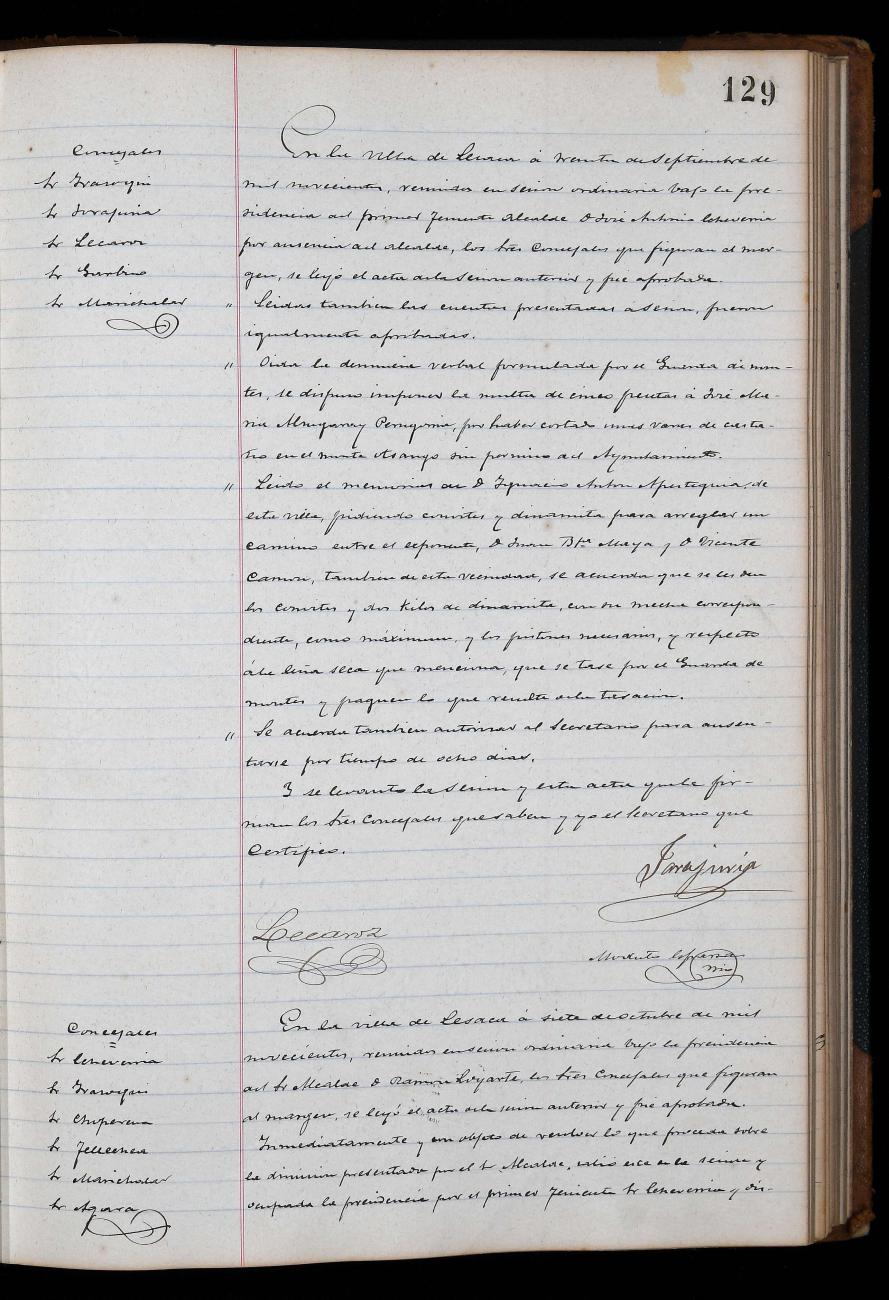 129
Concejales
Sr Irazoqui
Sr Tarajuria
Sr Lecaroz
Sr
Sr Marichalar
En la villa de Lesaca á treinta de Septiembre de
mil novecientos, reunidos en sesion ordinaria bajo la pre-
sidencia del primer Teniente Alcalde D. José Antonio Echeverria
por ausencia del Alcalde, los Sres Concejales que figuran al mar-
gen, se leyó el acta de la sesion anterior y fue aprobada.
" Leidas tambien las cuentas presentadas a sesion, fueron
igualmente aprobadas.
" Oida la denuncia verbal formulada por el Guarda de mon-
tes, se dispuso imponer la multa de cinco pesetas á José Ma-
ria, por haber cortado unas varas de casta-
ño en el monte sin permiso del Ayuntamiento.
" Leido el memorial de D Ignacio Anton Apesteguia, de
esta villa, pidiendo y dinamita para arreglar un
camino entre el exponente, D Juan Bta Maya y D Vicente
Camon, tambien de esta vecindad, se acuerda que se les den
los y dos kilos de dinamita, con su mecha correspon-
diente, como máximum, y los pistones necesarios, y respecto
á la leña seca que menciona, que se tase por el Guarda de
montes y paguen lo que resulte de la tasacion.
" Se acuerda tambien autorizar al Secretario para ausen-
tarse por tiempo de ocho dias.
Y se levantó la sesion y esta acta que la fir-
man los Sres Concejales que saben y yo el Secretario que
Certifico.
Tarajuria
Lecaroz
Modesto
Concejales
Sr Echeverria
Sr Irazoqui
Sr
Sr Tellechea
Sr Marichalar
Sr Agara
En la villa de Lesaca á siete de octubre de mil
novecientos, reunidos en sesion ordinaria bajo la presidencia
del Sr Alcalde D Ramon Loyarte, los Sres Concejales que figuran
al margen, se leyó el acta de la sesion anterior y fue aprobada.
Inmediatamente y con objeto de resolver lo que proceda sobre
la dimision presentada por el Sr Alcalde, la sesion y
ocupada la presidencia por el primer Teniente Sr Echeverria y dis-